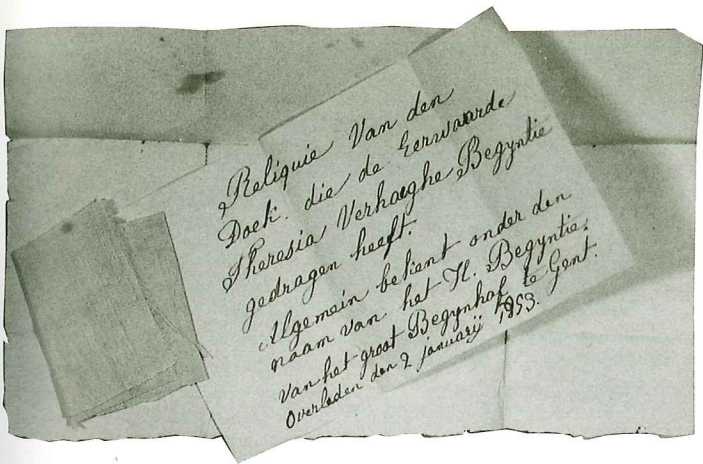 Reliquie Van den
Doek. die de Eerwaarde
Theresia Verhaeghe Begyntie
gedragen heeft.
Algemein bekent onder den
naam van het H. Begyntie.
van het groot Begynhof te Gent.
Overleden den 2 januarij 1853.